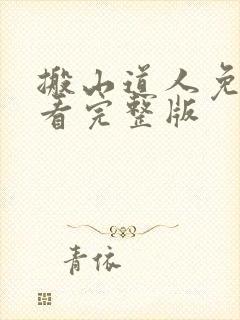 搬山道人免
看完整版
青依